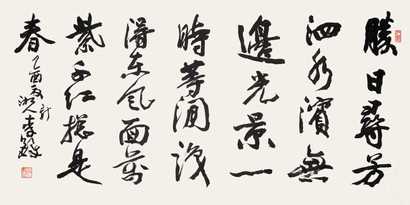 勝日尋芳
泗水濱無
邊光景一
時等閒識
得東风面萬
紫千红總是
春
新
乙酉夏